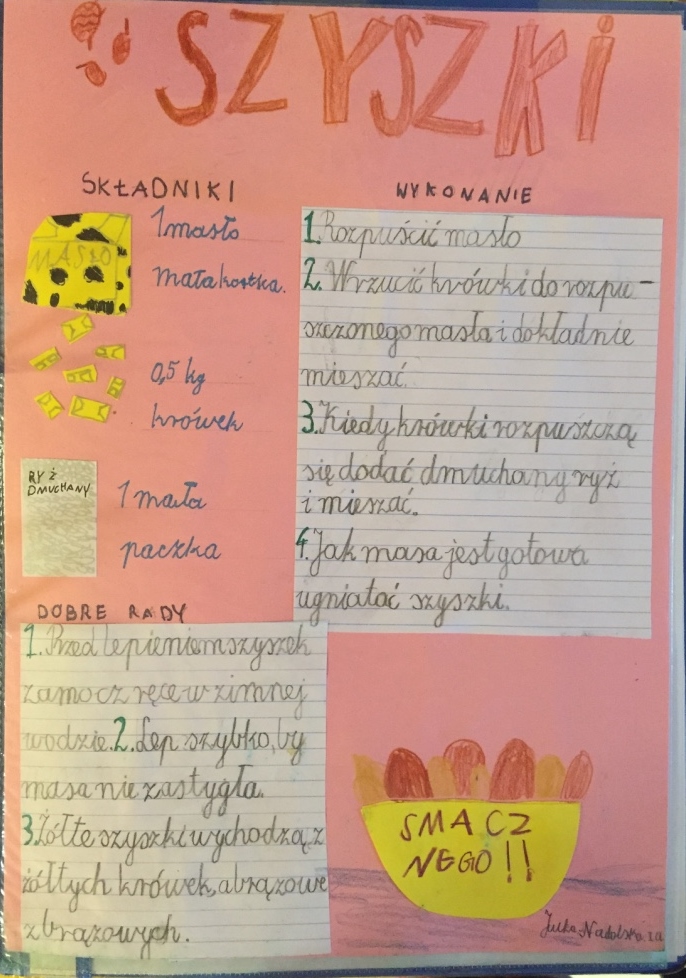 SZYSZKI
SKŁADNIKI
MASŁO
1 masło
mała kostka.
0,5 kg
krówek
RYŻ
DMUCHANY
1 mała
paczka
WYKONANIE
1. Rozpuścić masło
2. Wrzucić krówki do rozpu-
szczonego masła i dokładnie
mieszać.
3. Kiedy krówki rozpuszczą
się dodać dmuchany ryż
i mieszać.
4. Jak masa jest gotowa
ugniatać szyszki.
DOBRE RADY
1. Przed lepieniem szyszek
zamocz ręce w zimnej
wodzie. 2. Lep szybko, by
masa nie zastygła.
3. Żółte szyszki wychodzą z
żółtych krówek, a brązowe
z brązowych.
SMACZ
NEGO!!
Julka Nadolska